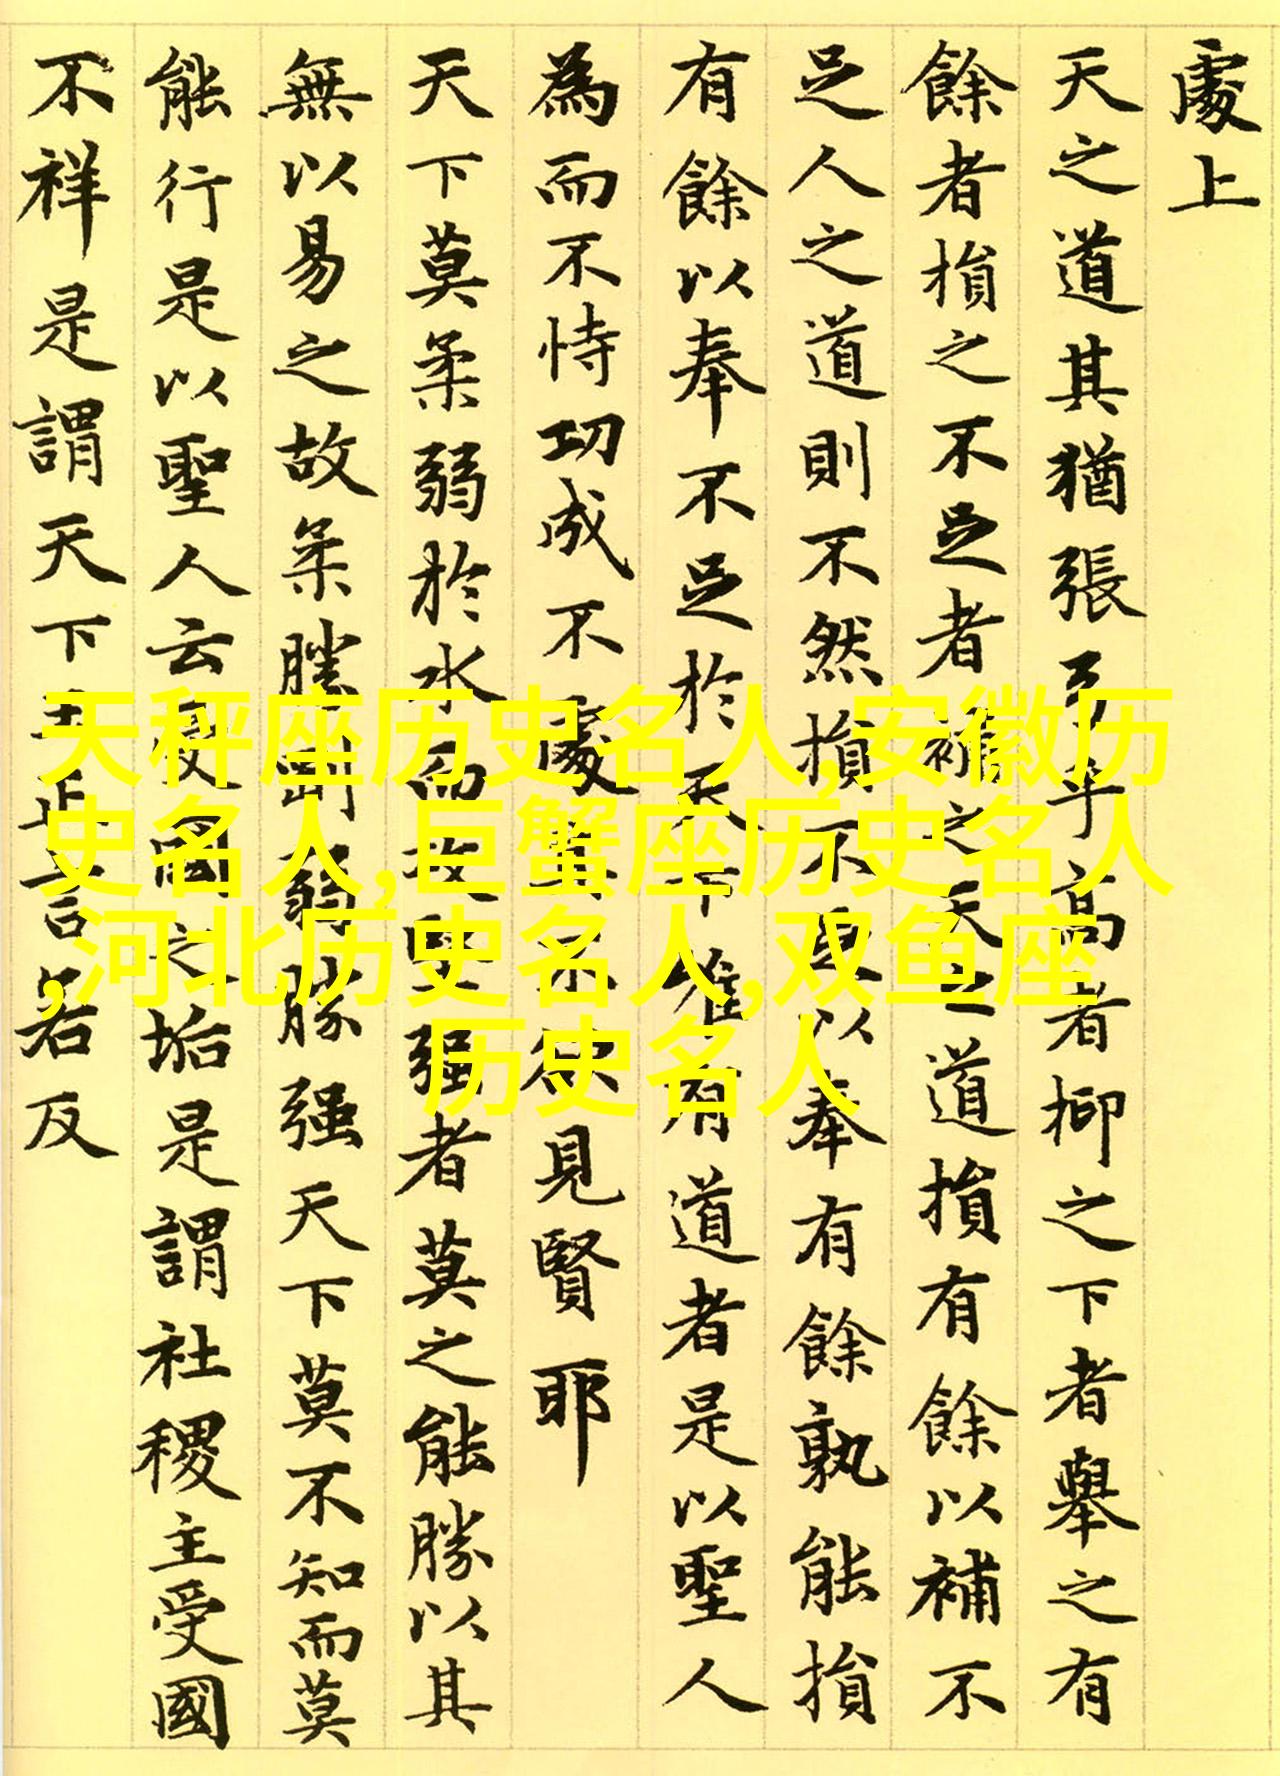 處上
天之道其猶張弓乎高者抑之下者舉之有
餘者損之不足者補之天之道損有餘以補不
足人之道則不然損不足以奉有餘孰能損
有餘以奉不足於天下唯有道者是以聖人
為而不恃功成不處其不欲見賢耶
天下莫柔弱於水而攻堅强者莫之能勝以其
無以易之故柔勝剛弱勝强天下莫不知而莫
能行是以聖人云受國之垢是謂社稷主受國
不祥是謂天下正言若反
天秤座历史名人,安徽历
史名人,巨蟹座历史名人
,河北历史名人,双鱼座
历史名人